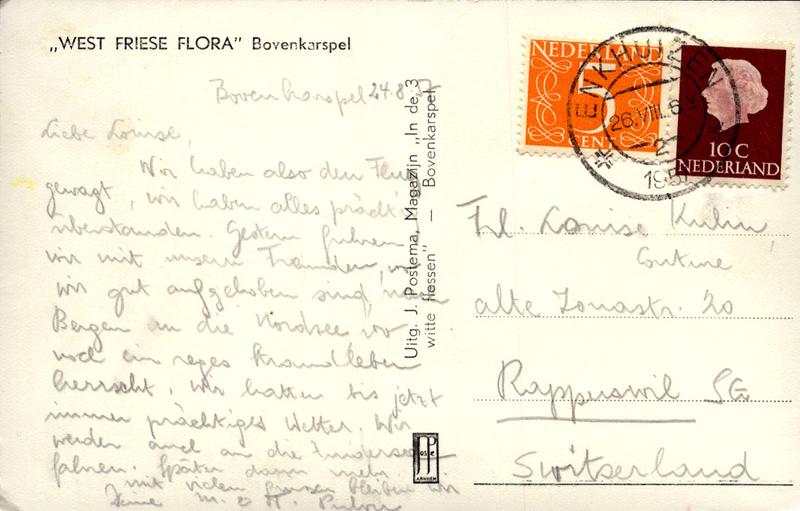 „WEST FRIESE FLORA” Bovenkarspel
Bovenkarspel 24.8.57
Liebe Louise,
Wir haben also den
gewagt, wir haben alles prächt.
überstanden. Gestern fuhren
wir mit unseren Freunden, wo
wir gut aufgehoben sind, nach
Bergen an die Nordsee wo
noch ein reges Strandleben
herrscht. Wir hatten bis jetzt
immer prächtiges Wetter. Wir
werden auch an die
fahren. Später dann mehr.
mit vielen Grüssen bleiben wir
Deine M. & H.
Uitg. J. Postema, Magazijn „In de 3
witte flessen” — Bovenkarspel
JP
ARNHEM
NEDERLAND
5
CENT
10 C
NEDERLAND
ENKHUIZEN
26.VIII.6
2
1957
Frl. Louise Kuhn
Couture
alte Jonastr. 20
Rapperswil SG
Switserland